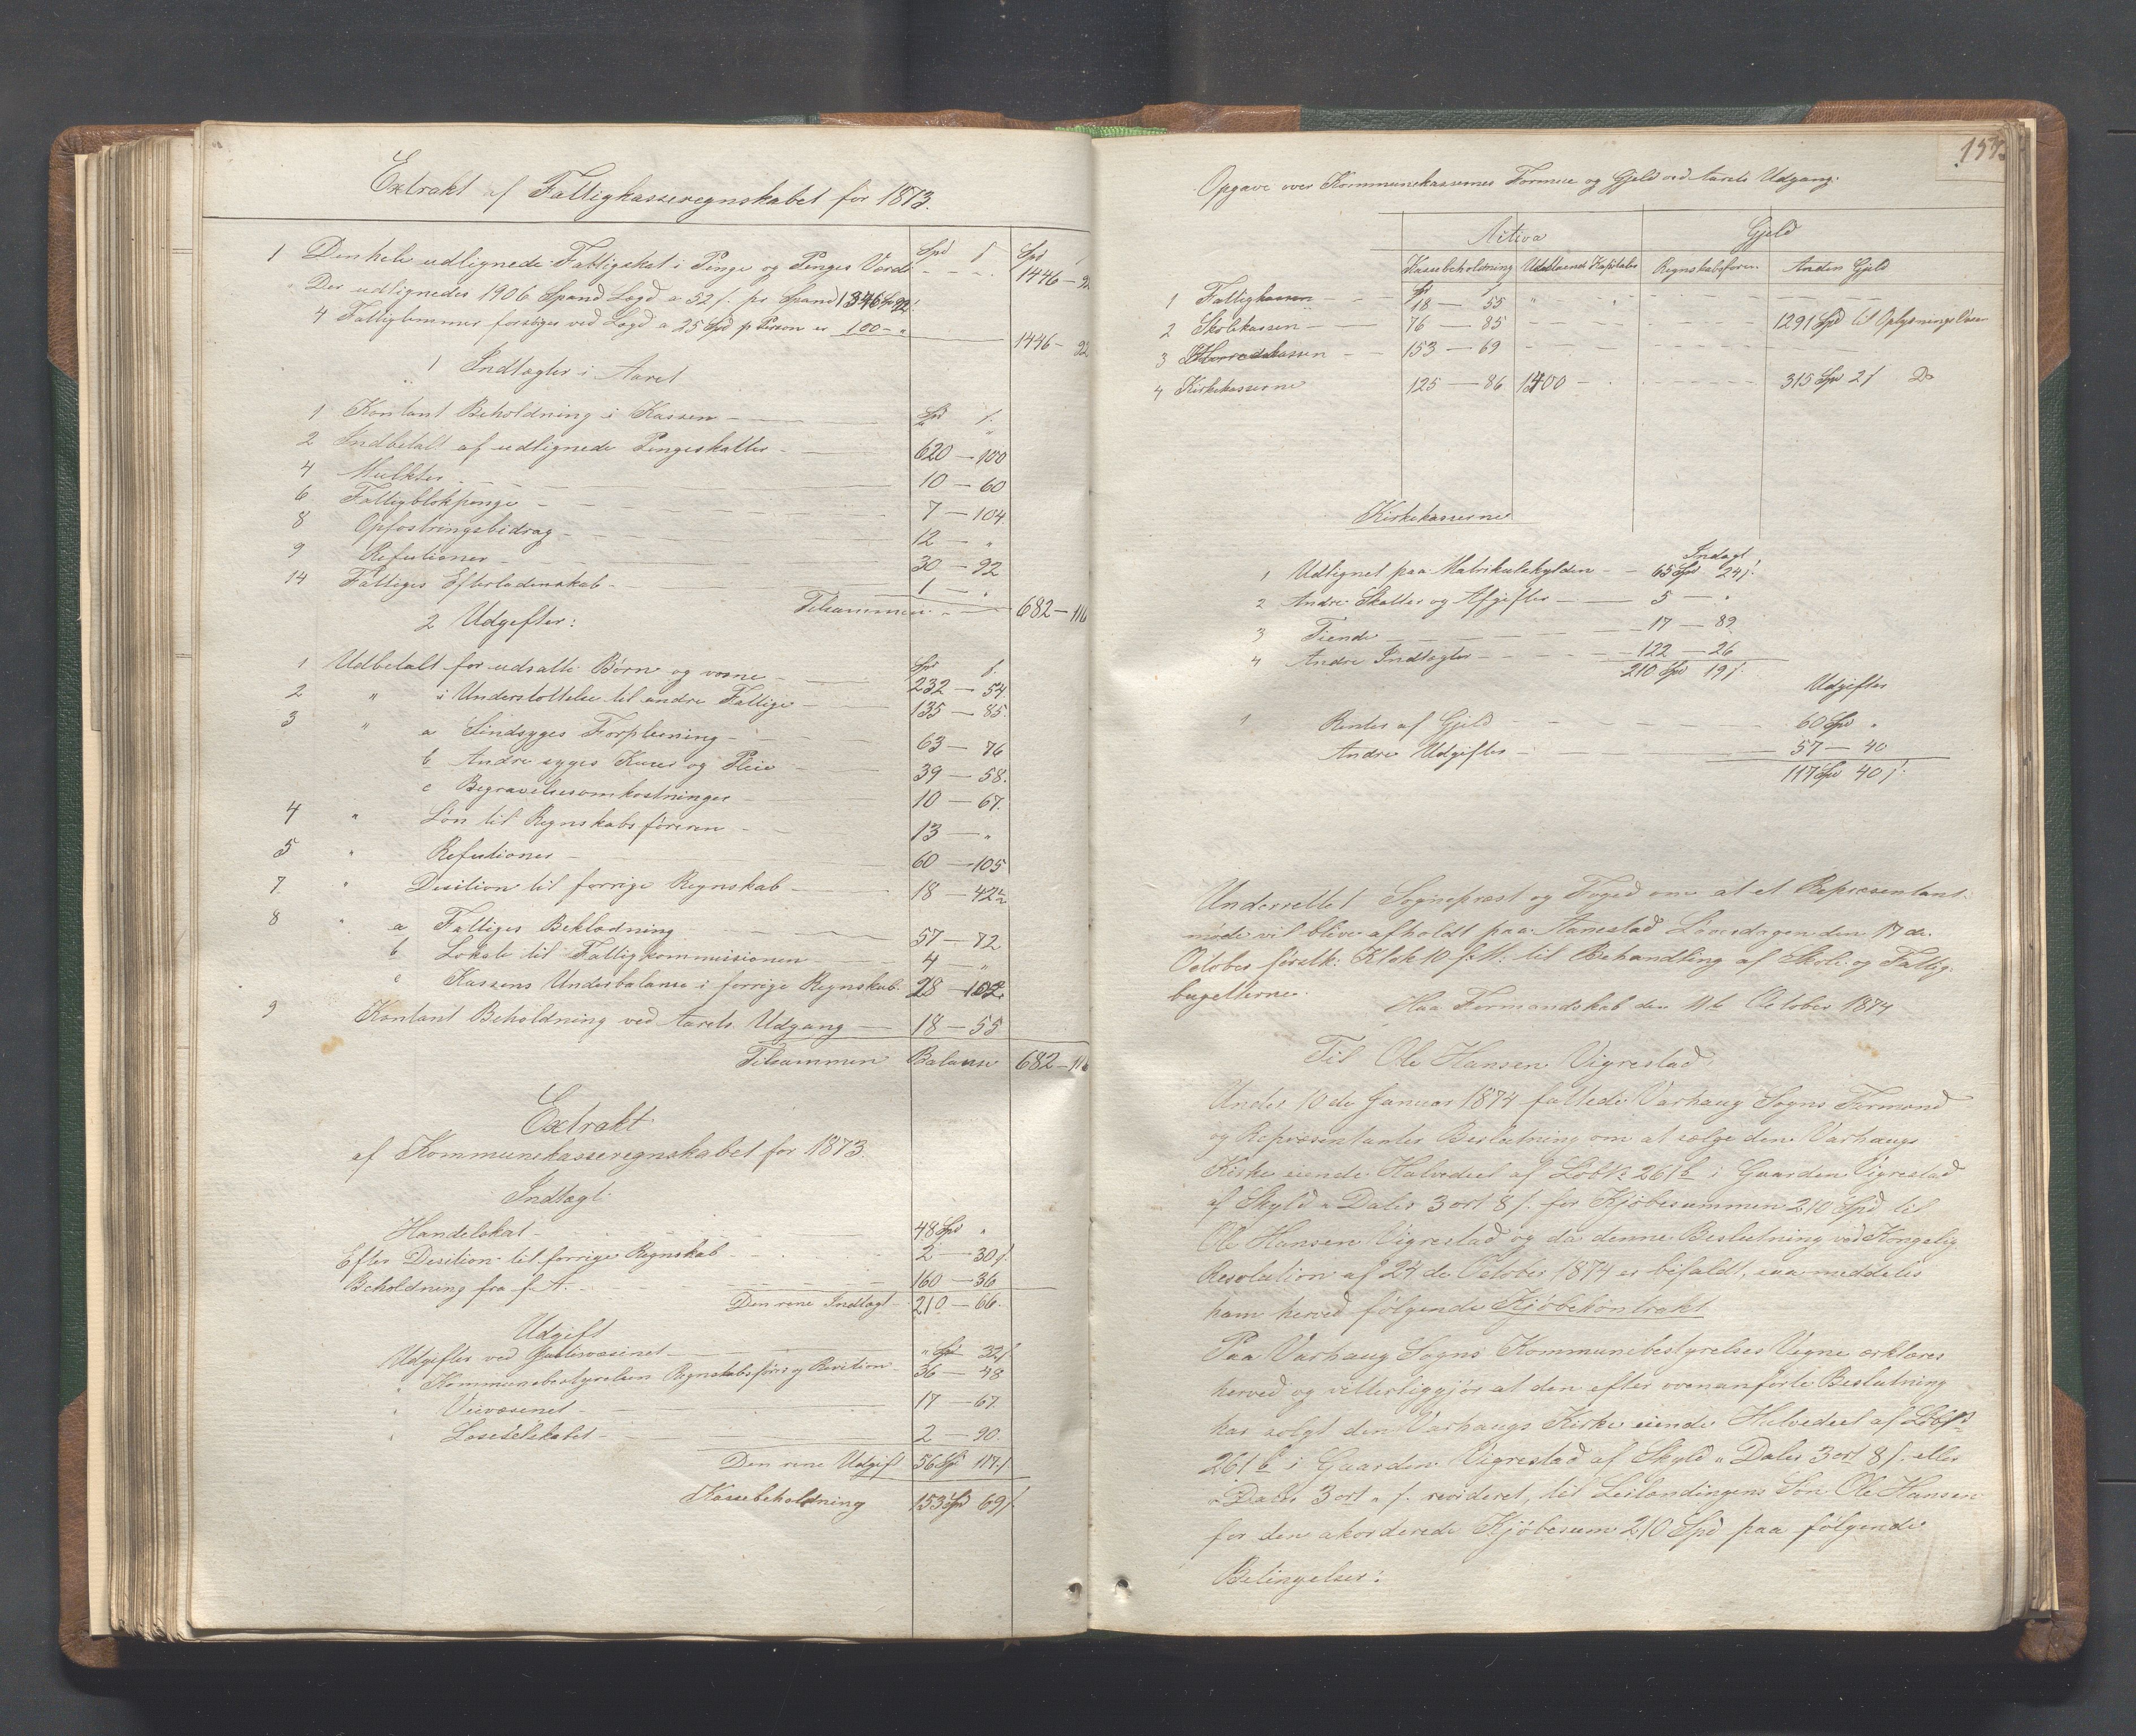 Extrakt af Fattigkasseregnskabet for 1873.
Spd ſ Spd
1 Den hele udlignede Fattigskat i Penge og Penges Værdi - - - 1446 - 92
Der udlignedes 1906 Spand Lægd a 52 ſ. pr Spand 1346 Sp 92
4 Fattiglemmer forsørges ved Lægd a 25 Spd pr Person er 100 - "
1446 - 92
1 Indtægter i Aaret
1 Kontant Beholdning i Kassen - Spd " ſ. "
2 Indbetalt af udlignede Pengeskatter - 620 - 100
4 Mulkter - 10 - 60
6 Fattigblokpenge - 7 - 104
8 Opfostringsbidrag - 12 - "
9 Refusioner - 30 - 92
14 Fattiges Efterladenskab - 1 - "
Tilsammen - 682 - 116
2 Udgifter:
Spd ſ
1 Udbetalt for udsatte Børn og voxne - 232 - 54
2 " i Understøttelse til andre Fattige - 135 - 85.
3 " a Sindsyges Forpleining - 63 - 76
b Andre syges Kurer og Pleie - 39 - 58.
c Begravelsesomkostninger - 10 - 67.
4 " Løn til Regnskabsføreren - 13 - "
5 " Refusioner - 60 - 105
7 " Desition til forrige Regnskab - 18 - 42
8 " a Fattiges Beklædning - 57 - 72
b Lokale til Fattigkommissionen - 4 - "
c Kassens Underbalanse i forrige Regnskab - 28 - 102
9 Kontant Beholdning ved Aarets Udgang - 18 - 55
Tilsammen Balanse 682 - 116
Extrakt
af Kommunekasseregnskabet for 1873.
Indtægt
Handelskat - 48 Spd "
Efter Desition til forrige Regnskab - 2 - 30 ſ.
Beholdning fra f. A. - 160 - 36
Den rene Indtægt - 210 - 66.
Udgift
Udgifter ved - " Spd 32 ſ
" Kommunebestyrelsen Regnskabsførs og Revition - 36 - 48
" Veivæsenet - 17 - 67.
" Læseselskabet - 2 - 90.
Den rene Udgift 56 Spd 117 ſ
Kassebeholdning 153 Spd 69 ſ
157.
Opgave over Kommunekassernes Formue og Gjeld ved Aarets Udgang.
Activa Gjeld
Kassebeholdning Udestaaende Kapitaler Regnskabsføren Anden Gjeld
1 Fattigkassen - Sp 18 - 55 " "
2 Skolekassen - 76 - 85 - 1291 Spd til Oplysningsvæsen
3 Herredskassen - 153 - 69
4 Kirkekasserne 125 - 86 1400 - 315 Spd 2 ſ
Kirkekasserne
Indtægt
1 Udlignet paa Matrikulskylden - 65 Spd 24 ſ.
2 Andre Skatter og Afgifter - 5 - "
3 Tiende - 17 - 89
4 Andre Indtægter - 122 - 26
210 Spd 19 ſ.
Udgifter
1 Renter af Gjeld - 60 Spd "
Andre Udgifter - 57 - 40
117 Spd 40 ſ.
Underrettet Sognepræst og Foged om at et Repræsentant-
møde vil blive afholdt paa Aanestad Løverdagen den 17de
October førstk: Klok 10 f.M: til Behandling af Skole og Fattig-
bugetterne.
Haa Formandskab den 11te October 1874
Til Ole Hansen Vigrestad
Under 10de Januar 1874 fattede Varhaug Sogns Formænd
og Repræsentanter Beslutning om at sælge den Varhaugs
Kirke eiende Halvedeel af Løb No 261 b i Gaarden Vigrestad
af Skyld " Daler 3 ort 8 ſ. for Kjøbesummen 210 Spd til
Ole Hansen Vigrestad og da denne Beslutning ved Kongelig
Resolution af 24de October 1874 er bifaldt, saa meddeles
ham herved følgende Kjøbekontrakt
Paa Varhaug Sogns Kommunebestyrelses Vegne erklæres
herved og vitterliggjør at den efter ovenanførte Beslutning
har solgt den Varhaugs Kirke eiende Halvedeel af Løb No
261 b i Gaarden Vigrestad af Skyld " Daler 3 ort 8 ſ. eller
" Daler 3 ort " ſ. revideret, til Leilændingens Søn Ole Hansen
for den akorderede Kjøbesum 210 Spd paa følgende
Betingelser: